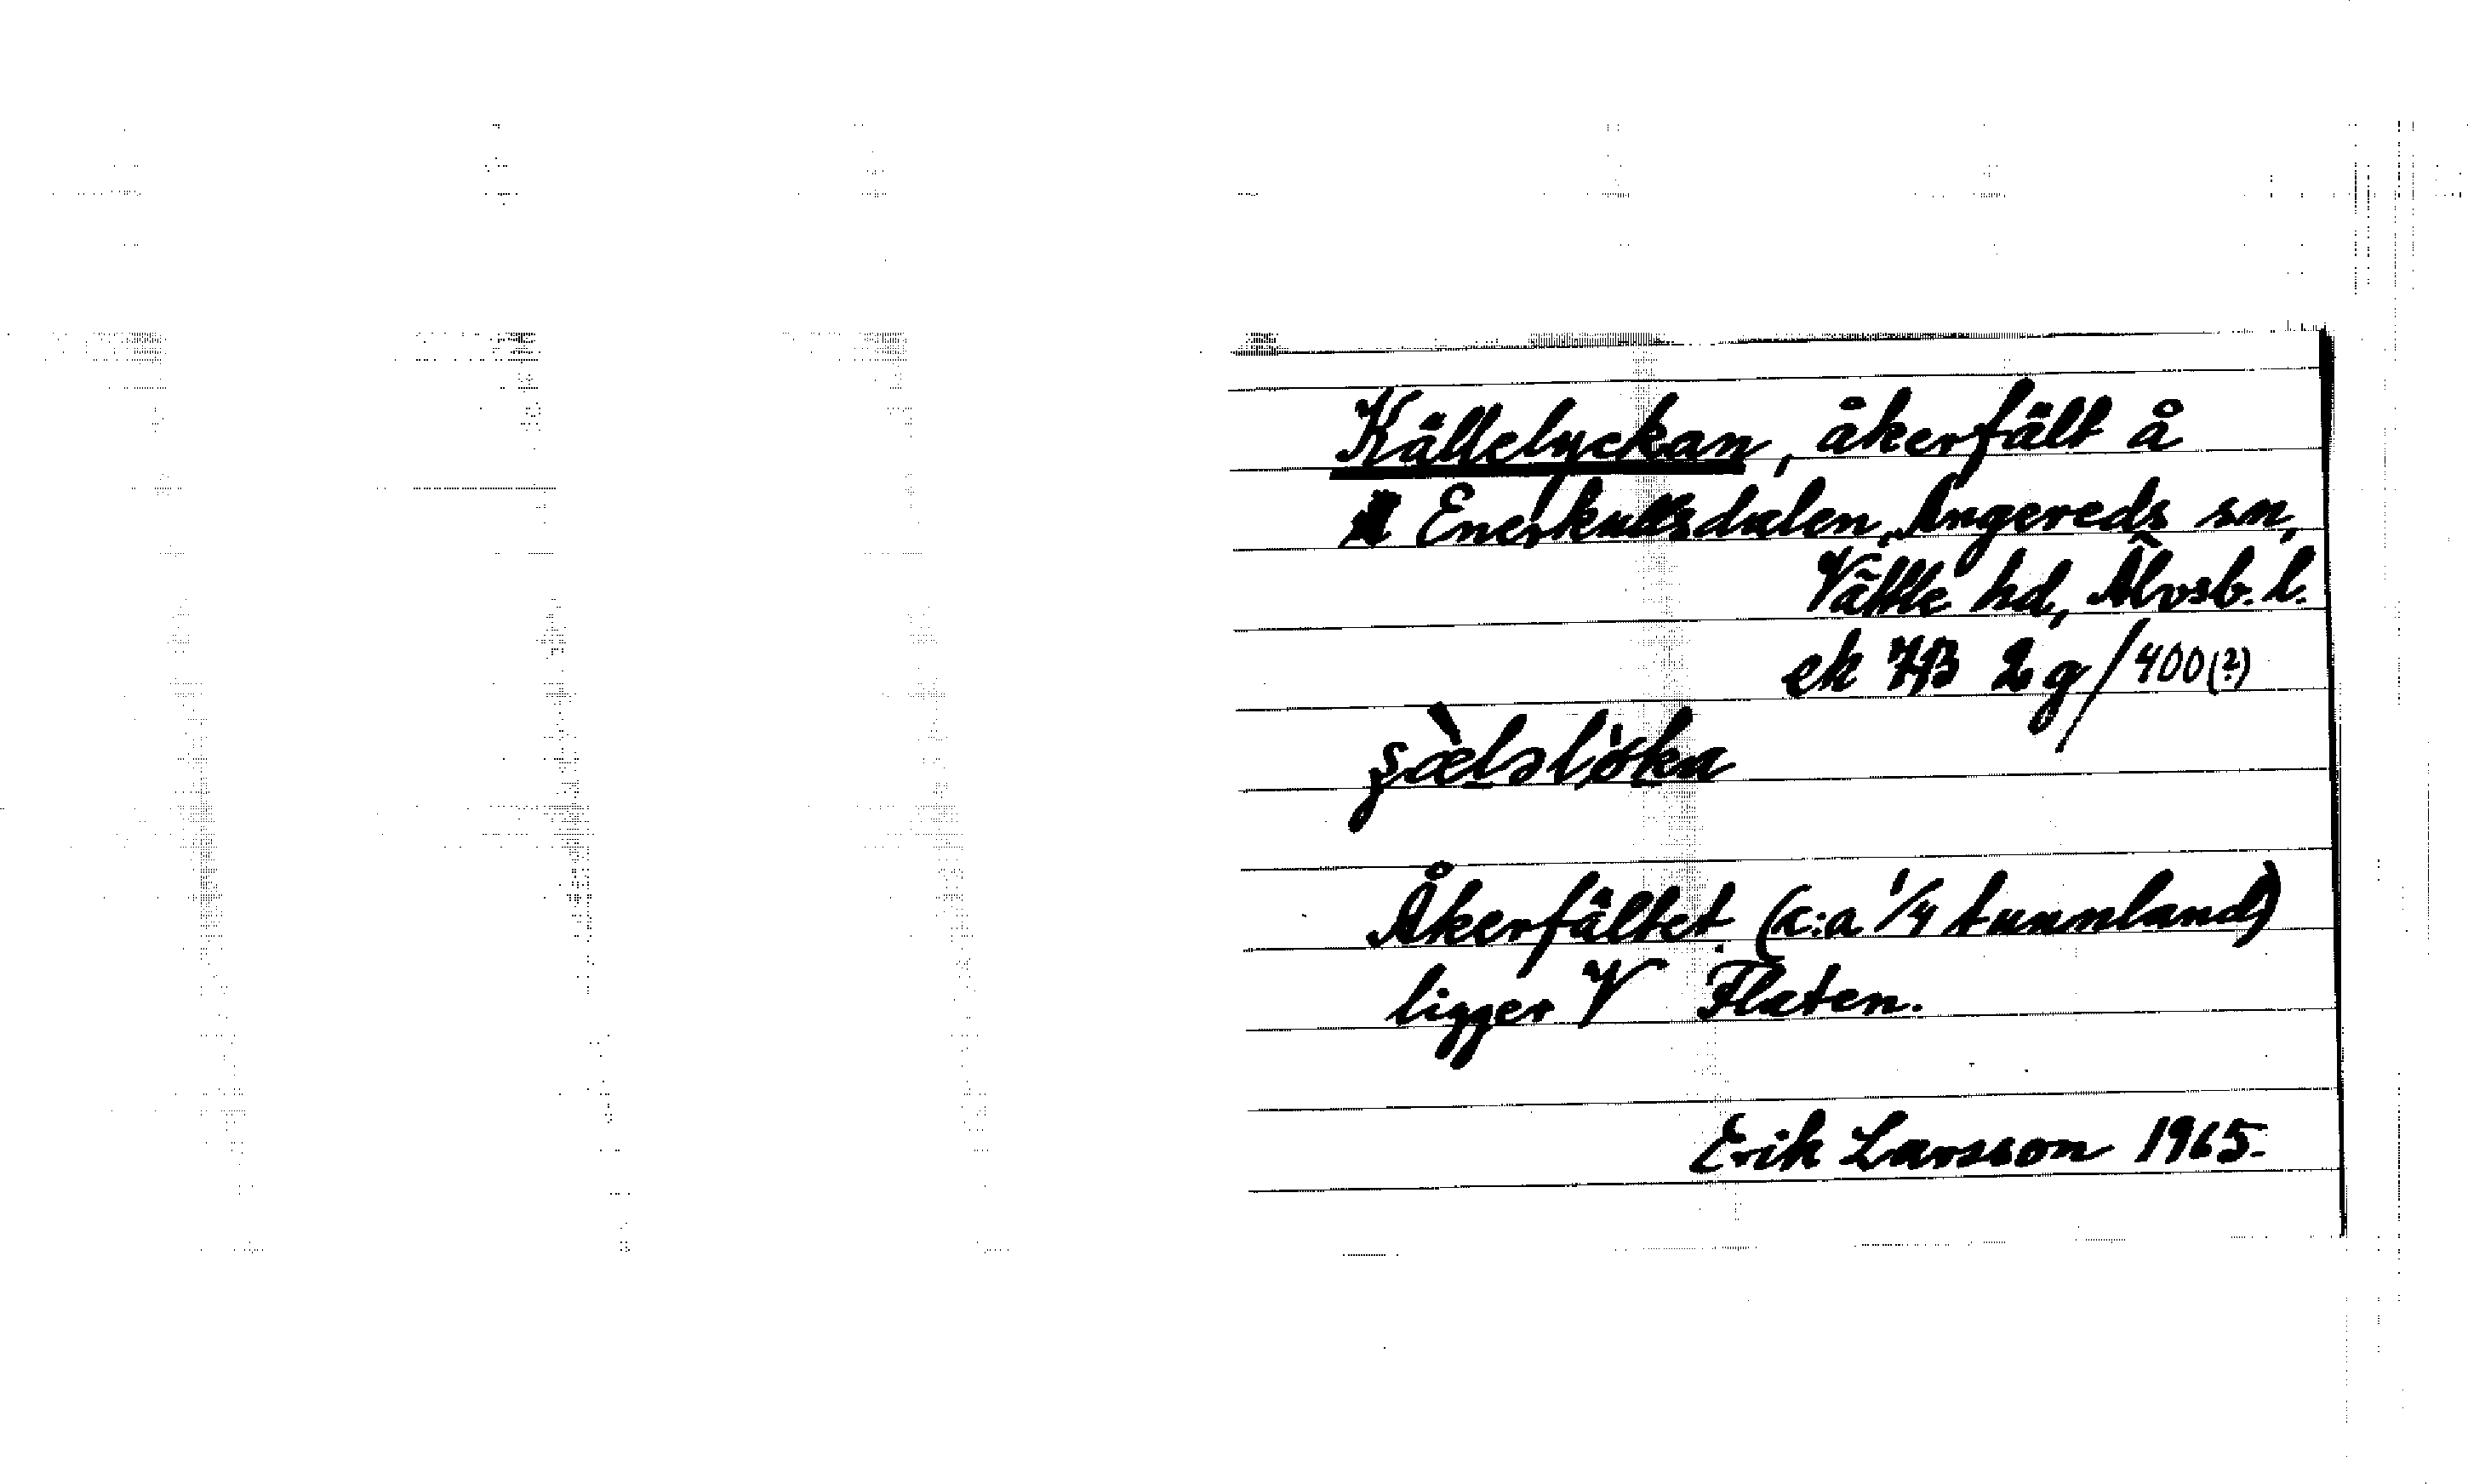 Källelyckan, åkerfält å
Enerkullsdalen, Angereds sn,
Vättle hd, Älvsb. l.
ek 7B 2g/400(?)
Åkerfältet (c:a 1/4 tunnland)
ligger V Flaten.
Erik Larsson 1965.